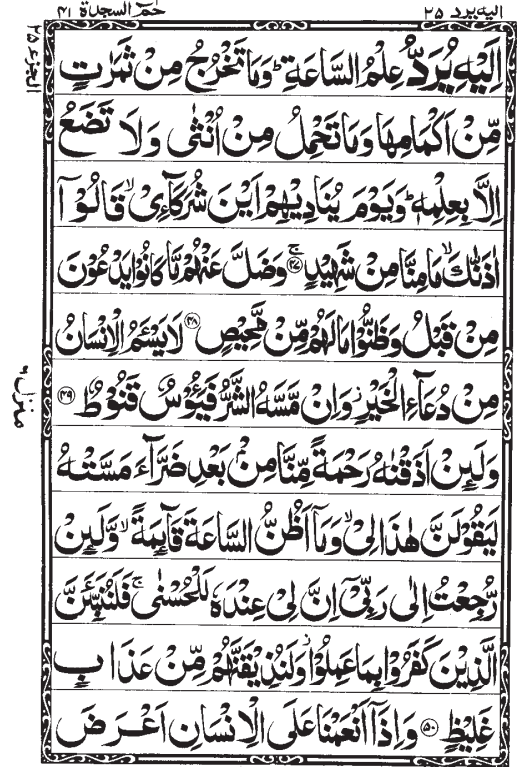 اليه يرد ٢٥
حٰمٓ السجدة ٤١
الجزء ٢٥
اِلَيْهِ يُرَدُّ عِلْمُ السَّاعَةِ ؕ وَمَا تَخْرُجُ مِنْ ثَمَرٰتٍ
مِّنْ اَكْمَامِهَا وَمَا تَحْمِلُ مِنْ اُنْثٰى وَلَا تَضَعُ
اِلَّا بِعِلْمِهٖ ؕ وَيَوْمَ يُنَادِيْهِمْ اَيْنَ شُرَكَآءِىْ ۙ قَالُوْۤا
اٰذَنّٰكَ ۙ مَا مِنَّا مِنْ شَهِيْدٍ ۚ ﴿٤٧﴾ وَضَلَّ عَنْهُمْ مَّا كَانُوْا يَدْعُوْنَ
مِنْ قَبْلُ وَظَنُّوْا مَا لَهُمْ مِّنْ مَّحِيْصٍ ﴿٤٨﴾ لَا يَسْـَٔمُ الْاِنْسَانُ
مِنْ دُعَآءِ الْخَيْرِ ؗ وَاِنْ مَّسَّهُ الشَّرُّ فَيَـُٔوْسٌ قَنُوْطٌ ﴿٤٩﴾
وَلَئِنْ اَذَقْنٰهُ رَحْمَةً مِّنَّا مِنْۢ بَعْدِ ضَرَّآءَ مَسَّتْهُ
لَيَقُوْلَنَّ هٰذَا لِىْ ۙ وَمَاۤ اَظُنُّ السَّاعَةَ قَآئِمَةً ۙ وَّلَئِنْ
رُّجِعْتُ اِلٰى رَبِّىْۤ اِنَّ لِىْ عِنْدَهٗ لَلْحُسْنٰى ۚ فَلَنُنَبِّئَنَّ
الَّذِيْنَ كَفَرُوْا بِمَا عَمِلُوْا ؗ وَلَنُذِيْقَنَّهُمْ مِّنْ عَذَابٍ
غَلِيْظٍ ﴿٥٠﴾ وَاِذَاۤ اَنْعَمْنَا عَلَى الْاِنْسَانِ اَعْرَضَ
منزل ٦